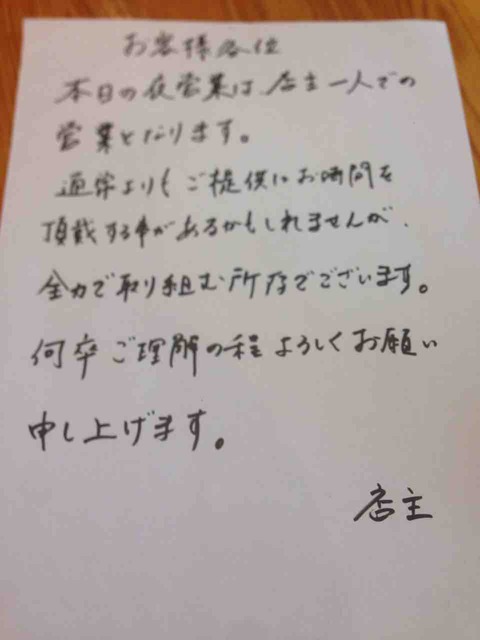 お客様各位
本日の夜営業は、店主一人での
営業となります。
通常よりもご提供にお時間を
頂戴する事があるかもしれませんが、
全力で取り組む所存でございます。
何卒ご理解の程よろしくお願い
申し上げます。
店主